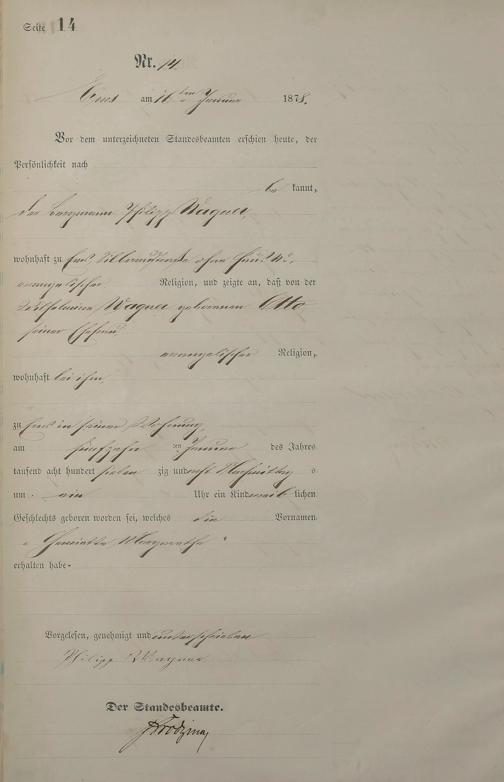 Seite 14
Nr. 14
Ems am 16ten Januar 1878.
Vor dem unterzeichneten Standesbeamten erschien heute, der
Persönlichkeit nach
bekannt,
der Bergmann Philipp Wagner,
wohnhaft zu Ems
evangelischer Religion, und zeigte an, daß von der
Wilhelmine Wagner geborenen Otto
seiner Ehefrau
evangelischer Religion,
wohnhaft bei ihm,
zu Ems in seiner Wohnung,
am fünfzehn ten Januar des Jahres
tausend acht hundert sieben zig und acht Nachmittags
um ein Uhr ein Kind weiblichen
Geschlechts geboren worden sei, welches die Vornamen
Henriette Margarethe
erhalten habe.
Vorgelesen, genehmigt und unterschrieben
Philipp Wagner
Der Standesbeamte.